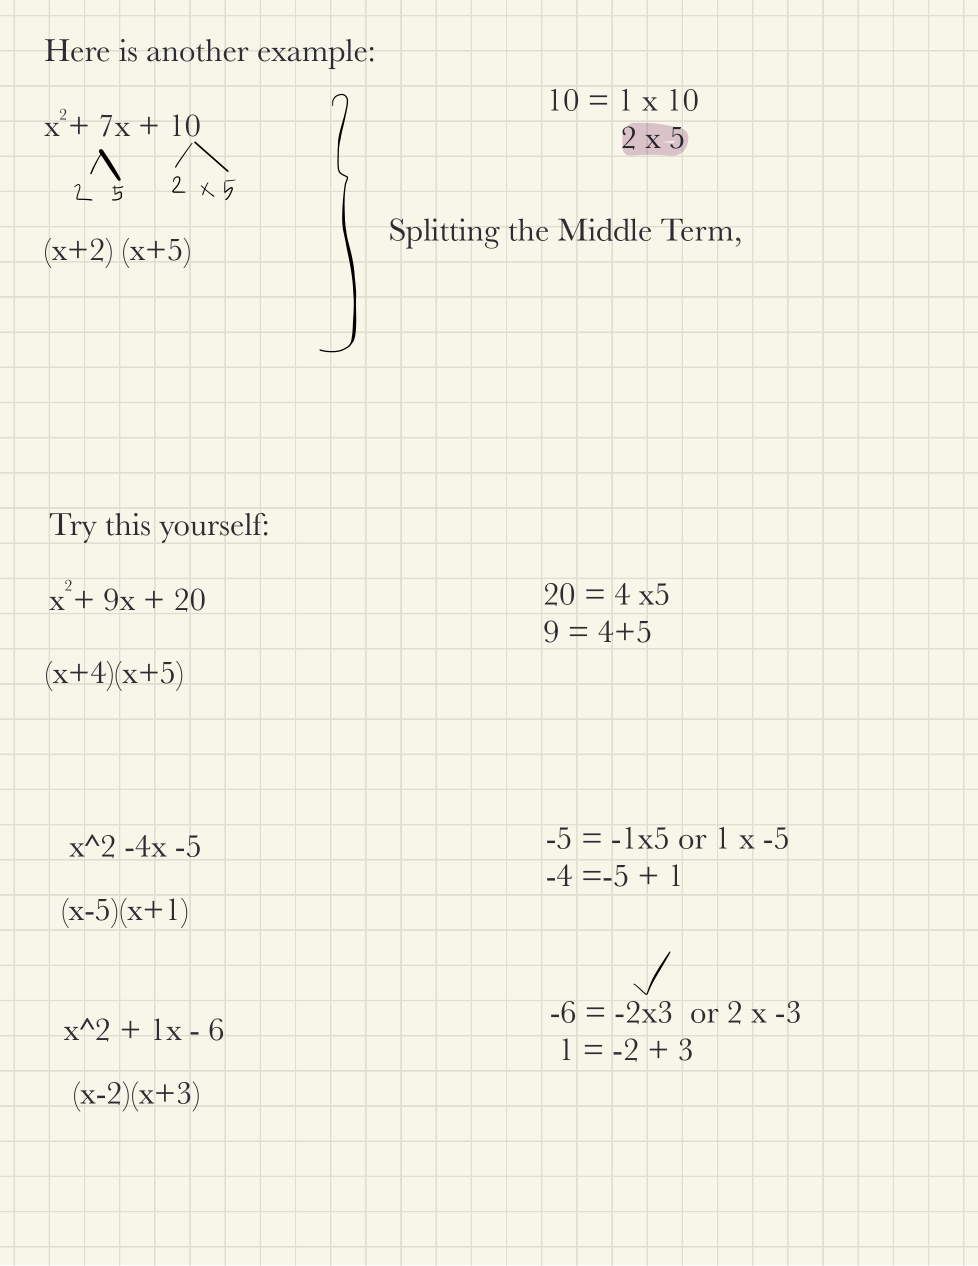 Here is another example:
x²+ 7x + 10
2 5 2 x 5
(x+2) (x+5)
10 = 1 x 10
2 x 5
Splitting the Middle Term,
Try this yourself:
x²+ 9x + 20
(x+4)(x+5)
20 = 4 x5
9 = 4+5
x^2 -4x -5
(x-5)(x+1)
-5 = -1x5 or 1 x -5
-4 =-5 + 1
x^2 + 1x - 6
(x-2)(x+3)
-6 = -2x3 or 2 x -3
1 = -2 + 3